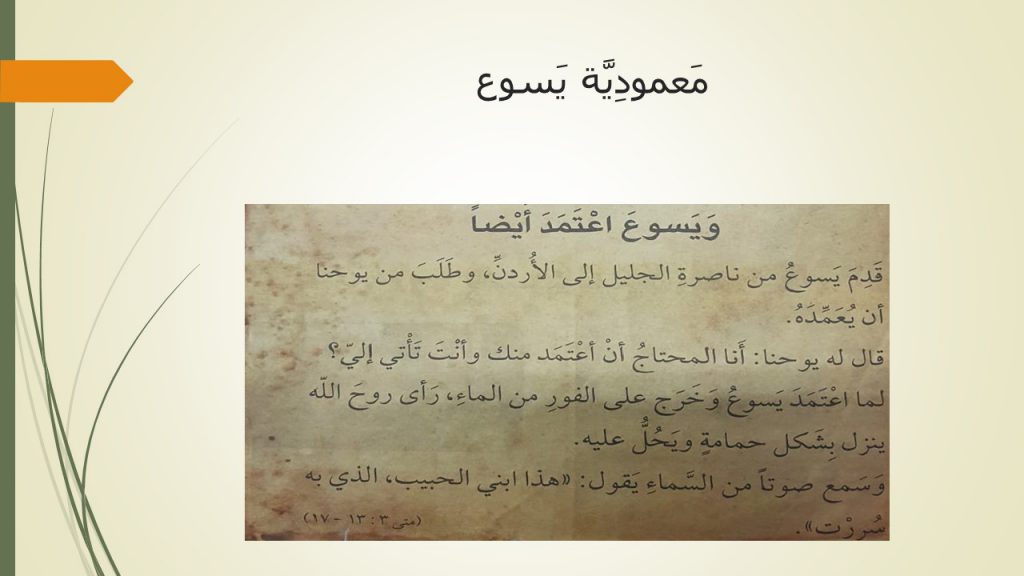 مَعموديَّة يَسوع
وَيَسوعَ اعْتَمَدَ أَيْضاً
قَدِمَ يَسوعُ من ناصرةِ الجليل إلى الأُردنِّ، وطَلَبَ من يوحنا
أن يُعَمِّدَهُ.
قال له يوحنا: أَنا المحتاجُ أنْ أعْتَمَد منك وأنْتَ تَأْتي إليّ؟
لما اعْتَمَدَ يَسوعُ وَخَرَج على الفورِ من الماءِ، رَأى روحَ اللّه
ينزل بِشَكل حمامةٍ ويَحُلُّ عليه.
وَسَمع صوتاً من السَّماءِ يَقول: «هذا ابني الحبيب، الذي به
سُررْت».
(متى ٣ : ١٣ - ١٧)